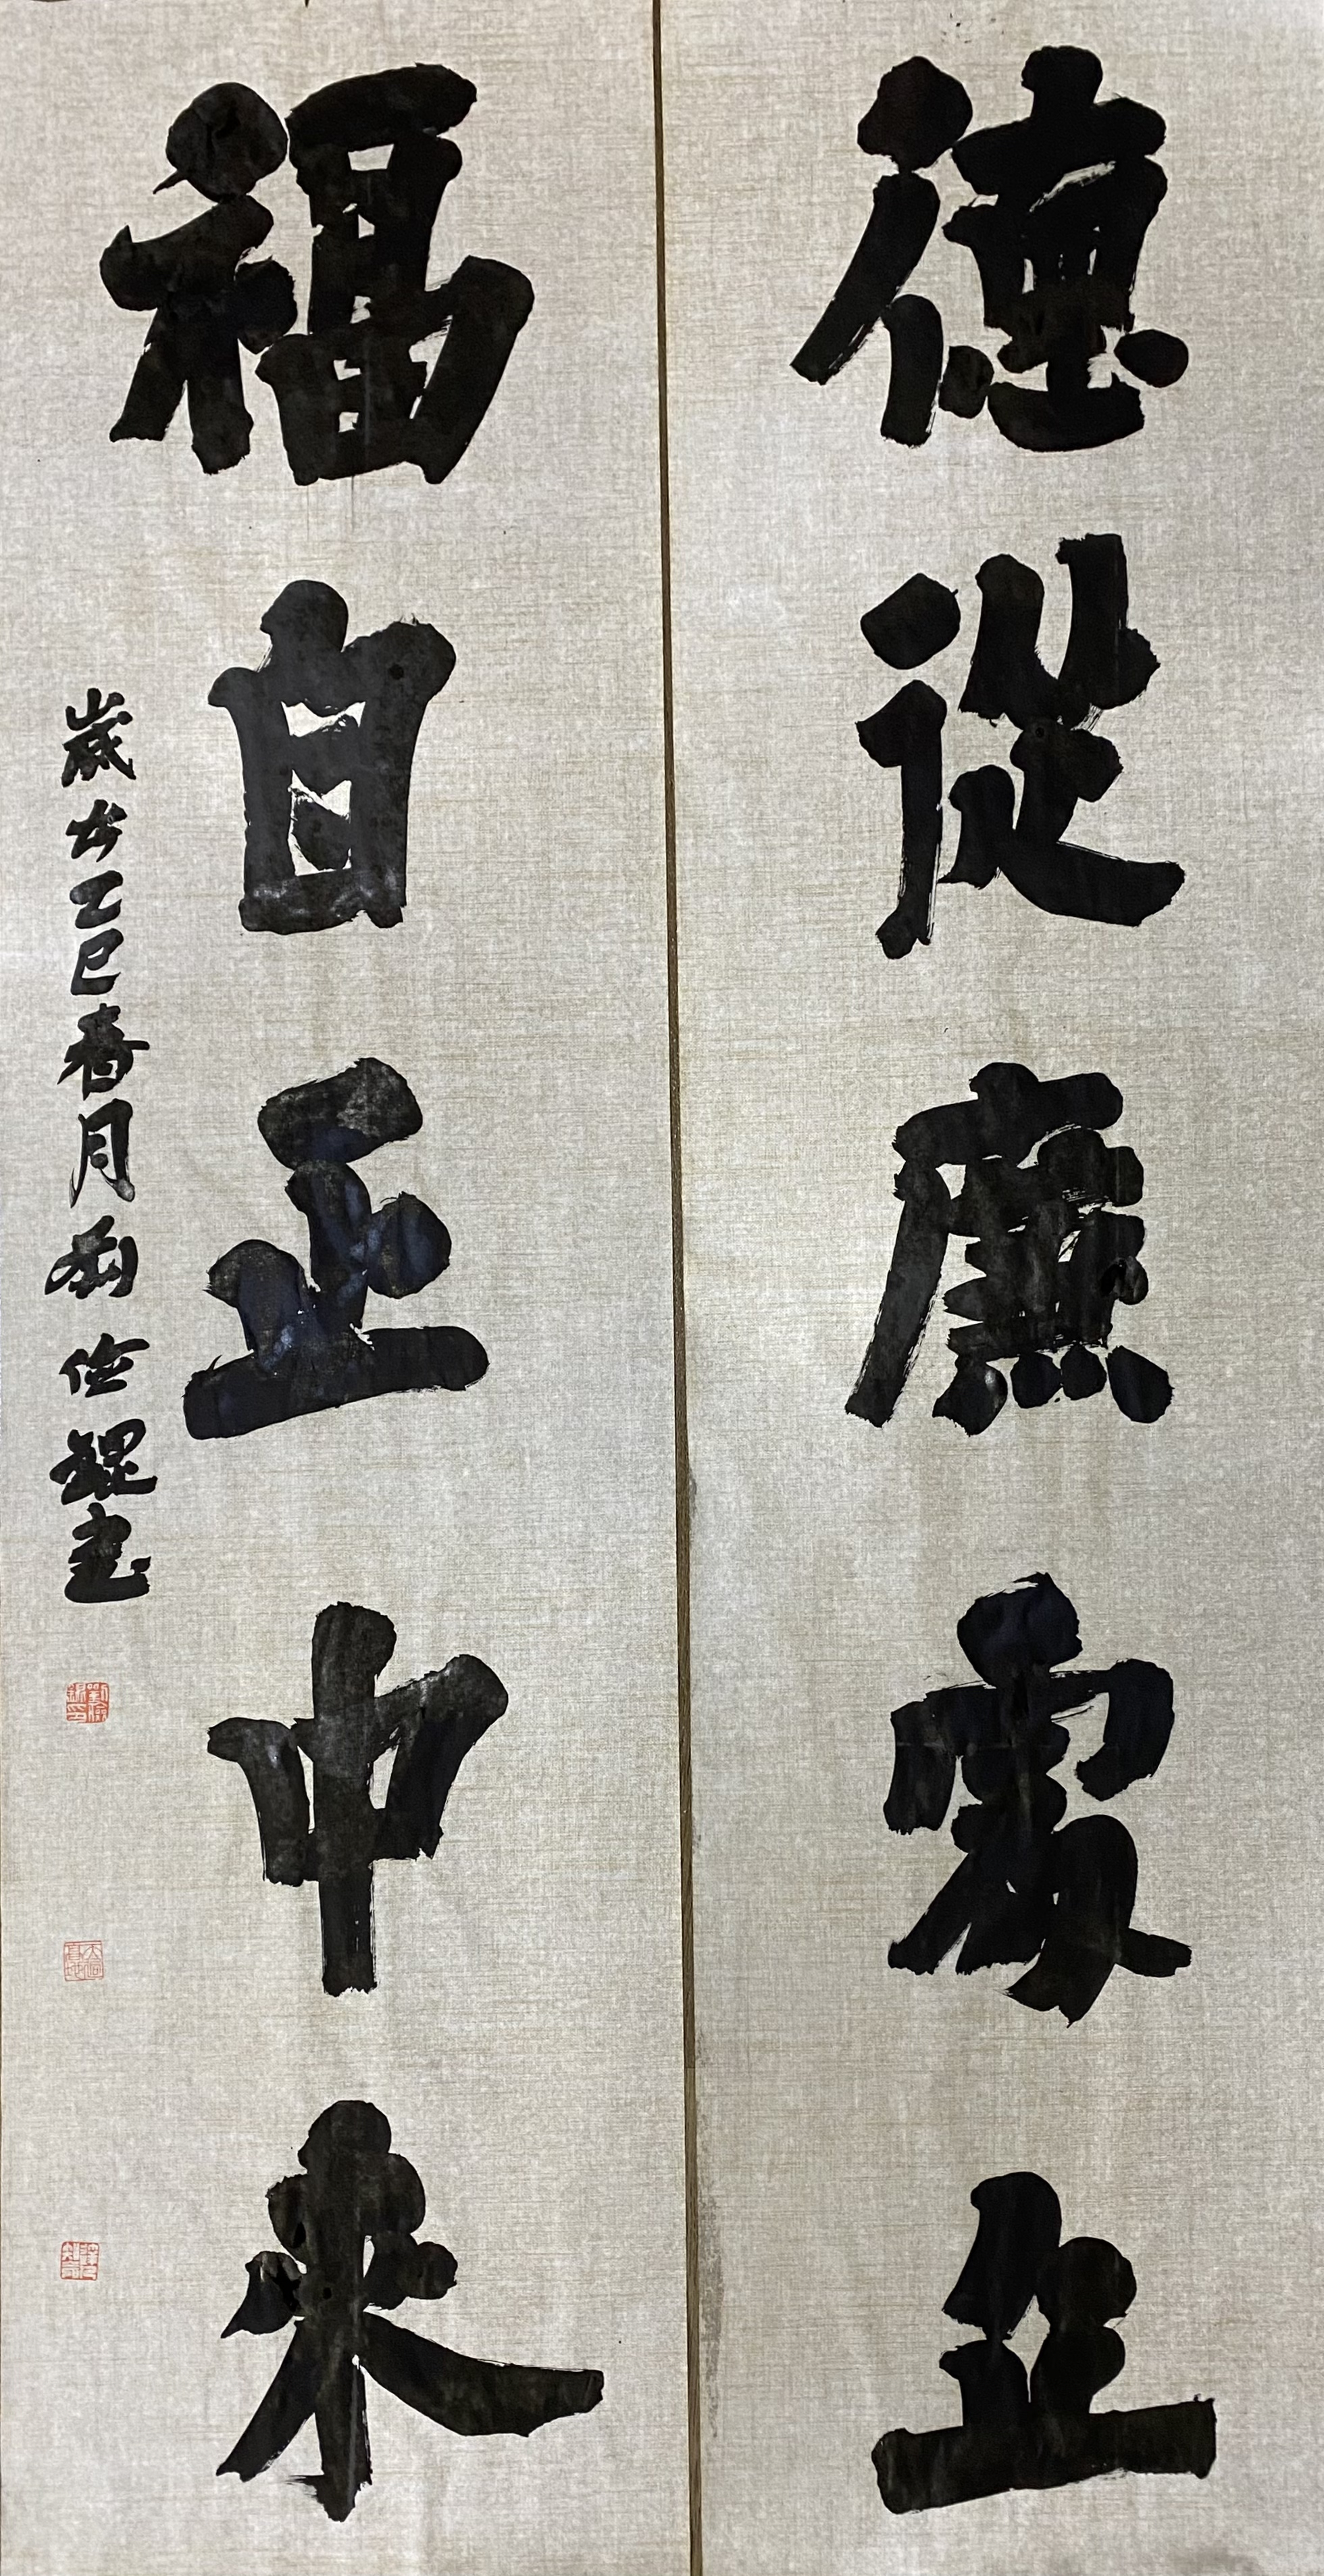 德從廉處立
福自正中來
歲次乙巳春月劉儉錕書